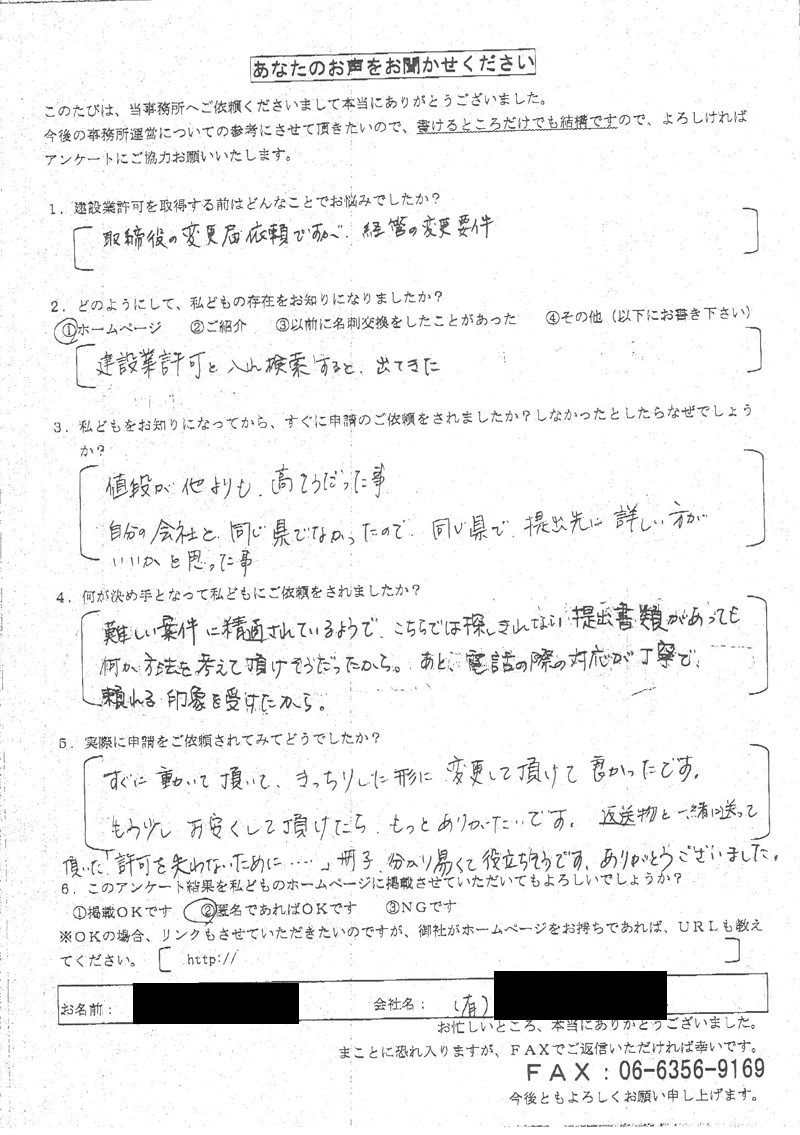 あなたのお声をお聞かせください
このたびは、当事務所へご依頼くださいまして本当にありがとうございました。
今後の事務所運営についての参考にさせて頂きたいので、書けるところだけでも結構ですので、よろしければ
アンケートにご協力お願いいたします。
1．建設業許可を取得する前はどんなことでお悩みでしたか？
取締役の変更届依頼ですが、経管の変更要件
2．どのようにして、私どもの存在をお知りになりましたか？
①ホームページ ②ご紹介 ③以前に名刺交換をしたことがあった ④その他（以下にお書き下さい）
建設業許可と入れ検索すると、出てきた
3．私どもをお知りになってから、すぐに申請のご依頼をされましたか？しなかったとしたらなぜでしょう
か？
値段が他よりも、高そうだった事
自分の会社と、同じ県でなかったので、同じ県で、提出先に詳しい方が
いいかと思った事
4．何が決め手となって私どもにご依頼をされましたか？
難しい案件に精通されているようで、こちらでは探しきれない提出書類があっても
何か方法を考えて頂けそうだったから。あと、電話の際の対応が丁寧で、
頼れる印象を受けたから。
5．実際に申請をご依頼されてみてどうでしたか？
すぐに動いて頂いて、きっちりした形に変更して頂けて良かったです。
もう少しお安くして頂けたら、もっとありがたいです。返送物と一緒に送って
頂いた「許可を失わないために……」冊子 分かり易くて役立ちそうです。ありがとうございました。
6．このアンケート結果を私どものホームページに掲載させていただいてもよろしいでしょうか？
①掲載ＯＫです ②匿名であればＯＫです ③ＮＧです
※ＯＫの場合、リンクもさせていただきたいのですが、御社がホームページをお持ちであれば、ＵＲＬも教え
てください。 http://
お名前： 会社名： （有）
お忙しいところ、本当にありがとうございました。
まことに恐れ入りますが、ＦＡＸでご返信いただければ幸いです。
ＦＡＸ：06-6356-9169
今後ともよろしくお願い申し上げます。